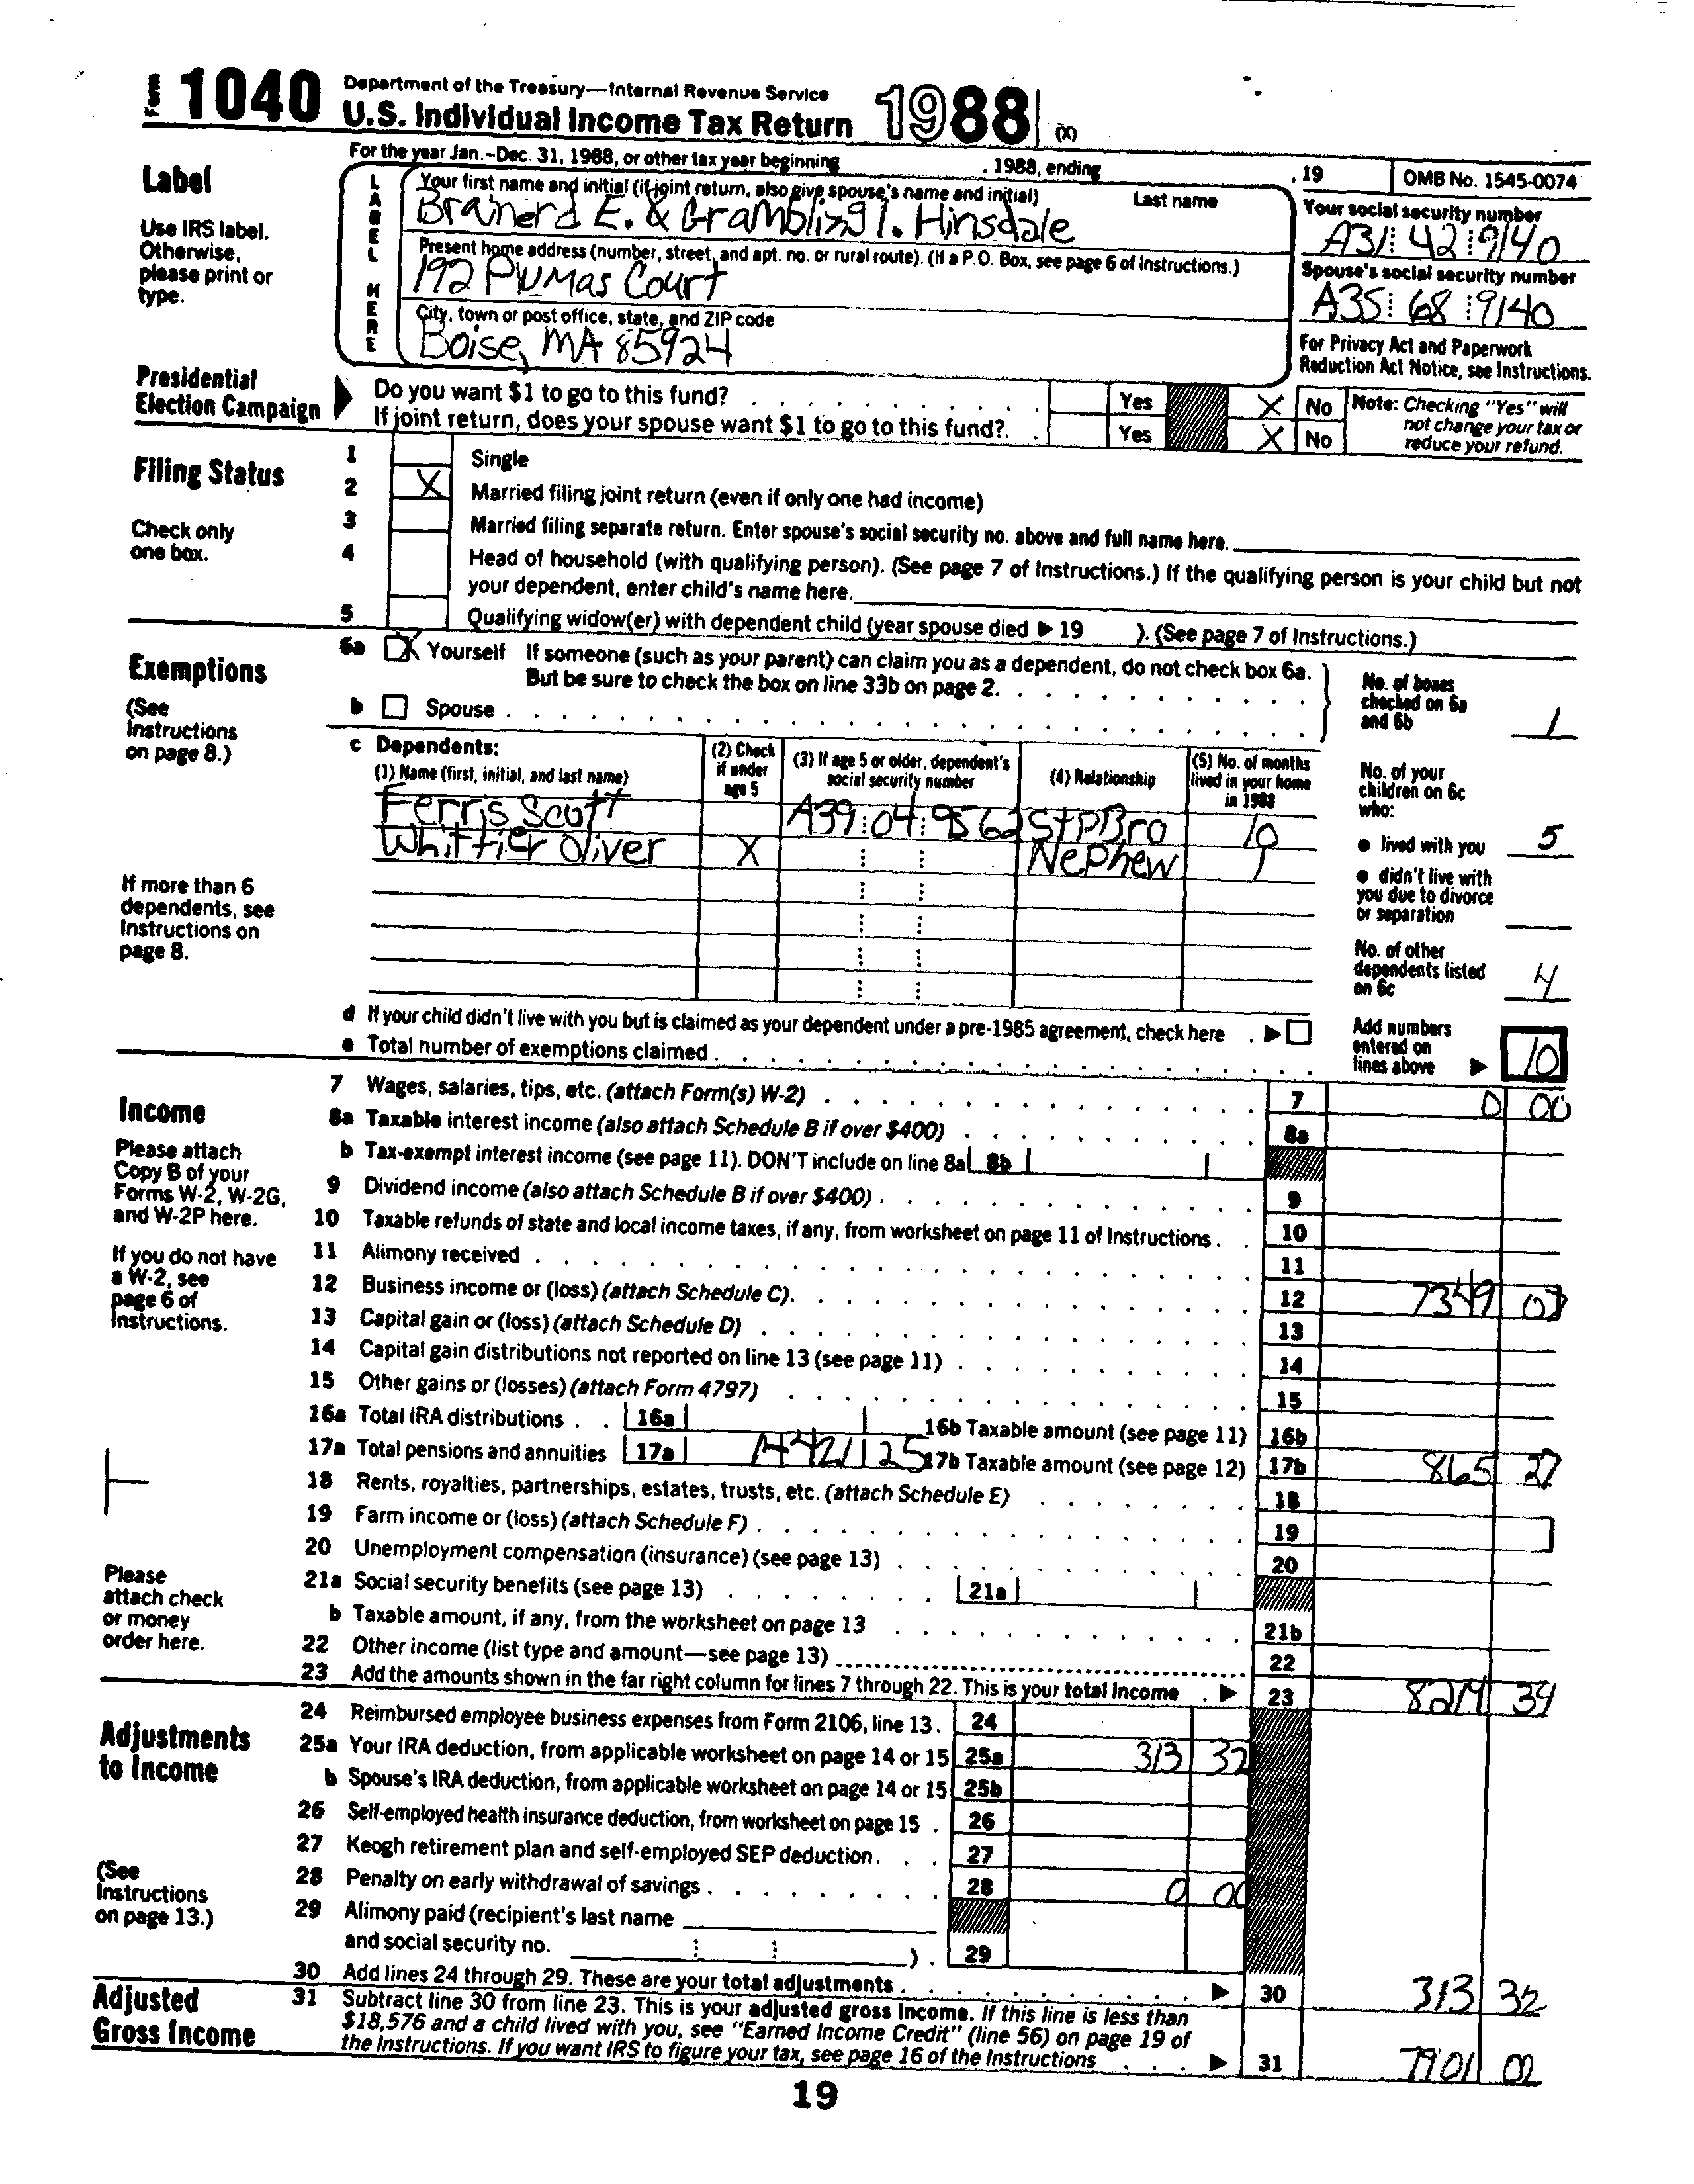 Form 1040 Department of the Treasury—Internal Revenue Service
U.S. Individual Income Tax Return 1988 (X)
For the year Jan.-Dec. 31, 1988, or other tax year beginning , 1988, ending , 19 OMB No. 1545-0074
Label
Use IRS label.
Otherwise,
please print or
type.
LABEL HERE
Your first name and initial (if joint return, also give spouse's name and initial) Last name
Brainerd E. & Grambling I. Hinsdale
Your social security number
A31 42 9140
Present home address (number, street, and apt. no. or rural route). (If a P.O. Box, see page 6 of Instructions.)
192 Plumas Court
Spouse's social security number
A35 68 9140
City, town or post office, state, and ZIP code
Boise, MA 85924
For Privacy Act and Paperwork
Reduction Act Notice, see Instructions.
Presidential
Election Campaign
Do you want $1 to go to this fund? Yes X No
If joint return, does your spouse want $1 to go to this fund? Yes X No
Note: Checking "Yes" will
not change your tax or
reduce your refund.
Filing Status
Check only
one box.
1 Single
2 X Married filing joint return (even if only one had income)
3 Married filing separate return. Enter spouse's social security no. above and full name here.
4 Head of household (with qualifying person). (See page 7 of Instructions.) If the qualifying person is your child but not
your dependent, enter child's name here.
5 Qualifying widow(er) with dependent child (year spouse died ▶ 19 ). (See page 7 of Instructions.)
Exemptions
(See
Instructions
on page 8.)
6a X Yourself If someone (such as your parent) can claim you as a dependent, do not check box 6a.
But be sure to check the box on line 33b on page 2.
b Spouse
No. of boxes
checked on 6a
and 6b 1
c Dependents:
(1) Name (first, initial, and last name)
(2) Check
if under
age 5
(3) If age 5 or older, dependent's
social security number
(4) Relationship
(5) No. of months
lived in your home
in 1988
Ferris Scott A39 04 9562 StpBro 10
Whittier Oliver X Nephew
If more than 6
dependents, see
Instructions on
page 8.
No. of your
children on 6c
who:
● lived with you 5
● didn't live with
you due to divorce
or separation
No. of other
dependents listed
on 6c 4
d If your child didn't live with you but is claimed as your dependent under a pre-1985 agreement, check here ▶
e Total number of exemptions claimed
Add numbers
entered on
lines above ▶ 10
Income
Please attach
Copy B of your
Forms W-2, W-2G,
and W-2P here.
If you do not have
a W-2, see
page 6 of
Instructions.
Please
attach check
or money
order here.
7 Wages, salaries, tips, etc. (attach Form(s) W-2) 7 0 00
8a Taxable interest income (also attach Schedule B if over $400) 8a
b Tax-exempt interest income (see page 11). DON'T include on line 8a 8b
9 Dividend income (also attach Schedule B if over $400) 9
10 Taxable refunds of state and local income taxes, if any, from worksheet on page 11 of Instructions 10
11 Alimony received 11
12 Business income or (loss) (attach Schedule C) 12 7349 07
13 Capital gain or (loss) (attach Schedule D) 13
14 Capital gain distributions not reported on line 13 (see page 11) 14
15 Other gains or (losses) (attach Form 4797) 15
16a Total IRA distributions 16a 16b Taxable amount (see page 11) 16b
17a Total pensions and annuities 17a 25 17b Taxable amount (see page 12) 17b 865 27
18 Rents, royalties, partnerships, estates, trusts, etc. (attach Schedule E) 18
19 Farm income or (loss) (attach Schedule F) 19
20 Unemployment compensation (insurance) (see page 13) 20
21a Social security benefits (see page 13) 21a
b Taxable amount, if any, from the worksheet on page 13 21b
22 Other income (list type and amount—see page 13) 22
23 Add the amounts shown in the far right column for lines 7 through 22. This is your total income ▶ 23 8214 34
Adjustments
to Income
(See
Instructions
on page 13.)
24 Reimbursed employee business expenses from Form 2106, line 13. 24
25a Your IRA deduction, from applicable worksheet on page 14 or 15 25a 313 32
b Spouse's IRA deduction, from applicable worksheet on page 14 or 15 25b
26 Self-employed health insurance deduction, from worksheet on page 15 26
27 Keogh retirement plan and self-employed SEP deduction 27
28 Penalty on early withdrawal of savings 28 0 00
29 Alimony paid (recipient's last name
and social security no. ) 29
30 Add lines 24 through 29. These are your total adjustments ▶ 30 313 32
Adjusted
Gross Income
31 Subtract line 30 from line 23. This is your adjusted gross income. If this line is less than
$18,576 and a child lived with you, see "Earned Income Credit" (line 56) on page 19 of
the Instructions. If you want IRS to figure your tax, see page 16 of the Instructions ▶ 31 7901 02
19